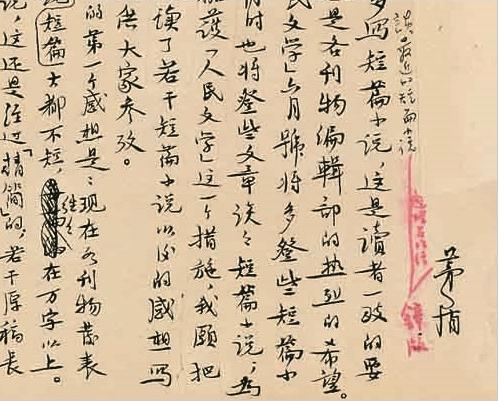 谈最近的短篇小说
茅盾
多写短篇小说,这是读者一致的要
是各刊物编辑部的热烈的希望。
民文学」六月號将多登些短篇小
时也将登些文章谈谈短篇小说,为
护「人民文学」这一个措施,我願把
读了若干短篇小说以后的感想写
供大家参考。
的第一个感想是:现在各刊物发表
短篇大都不短,往往在万字以上。
说,这还是经过「精简」的,若干原稿长